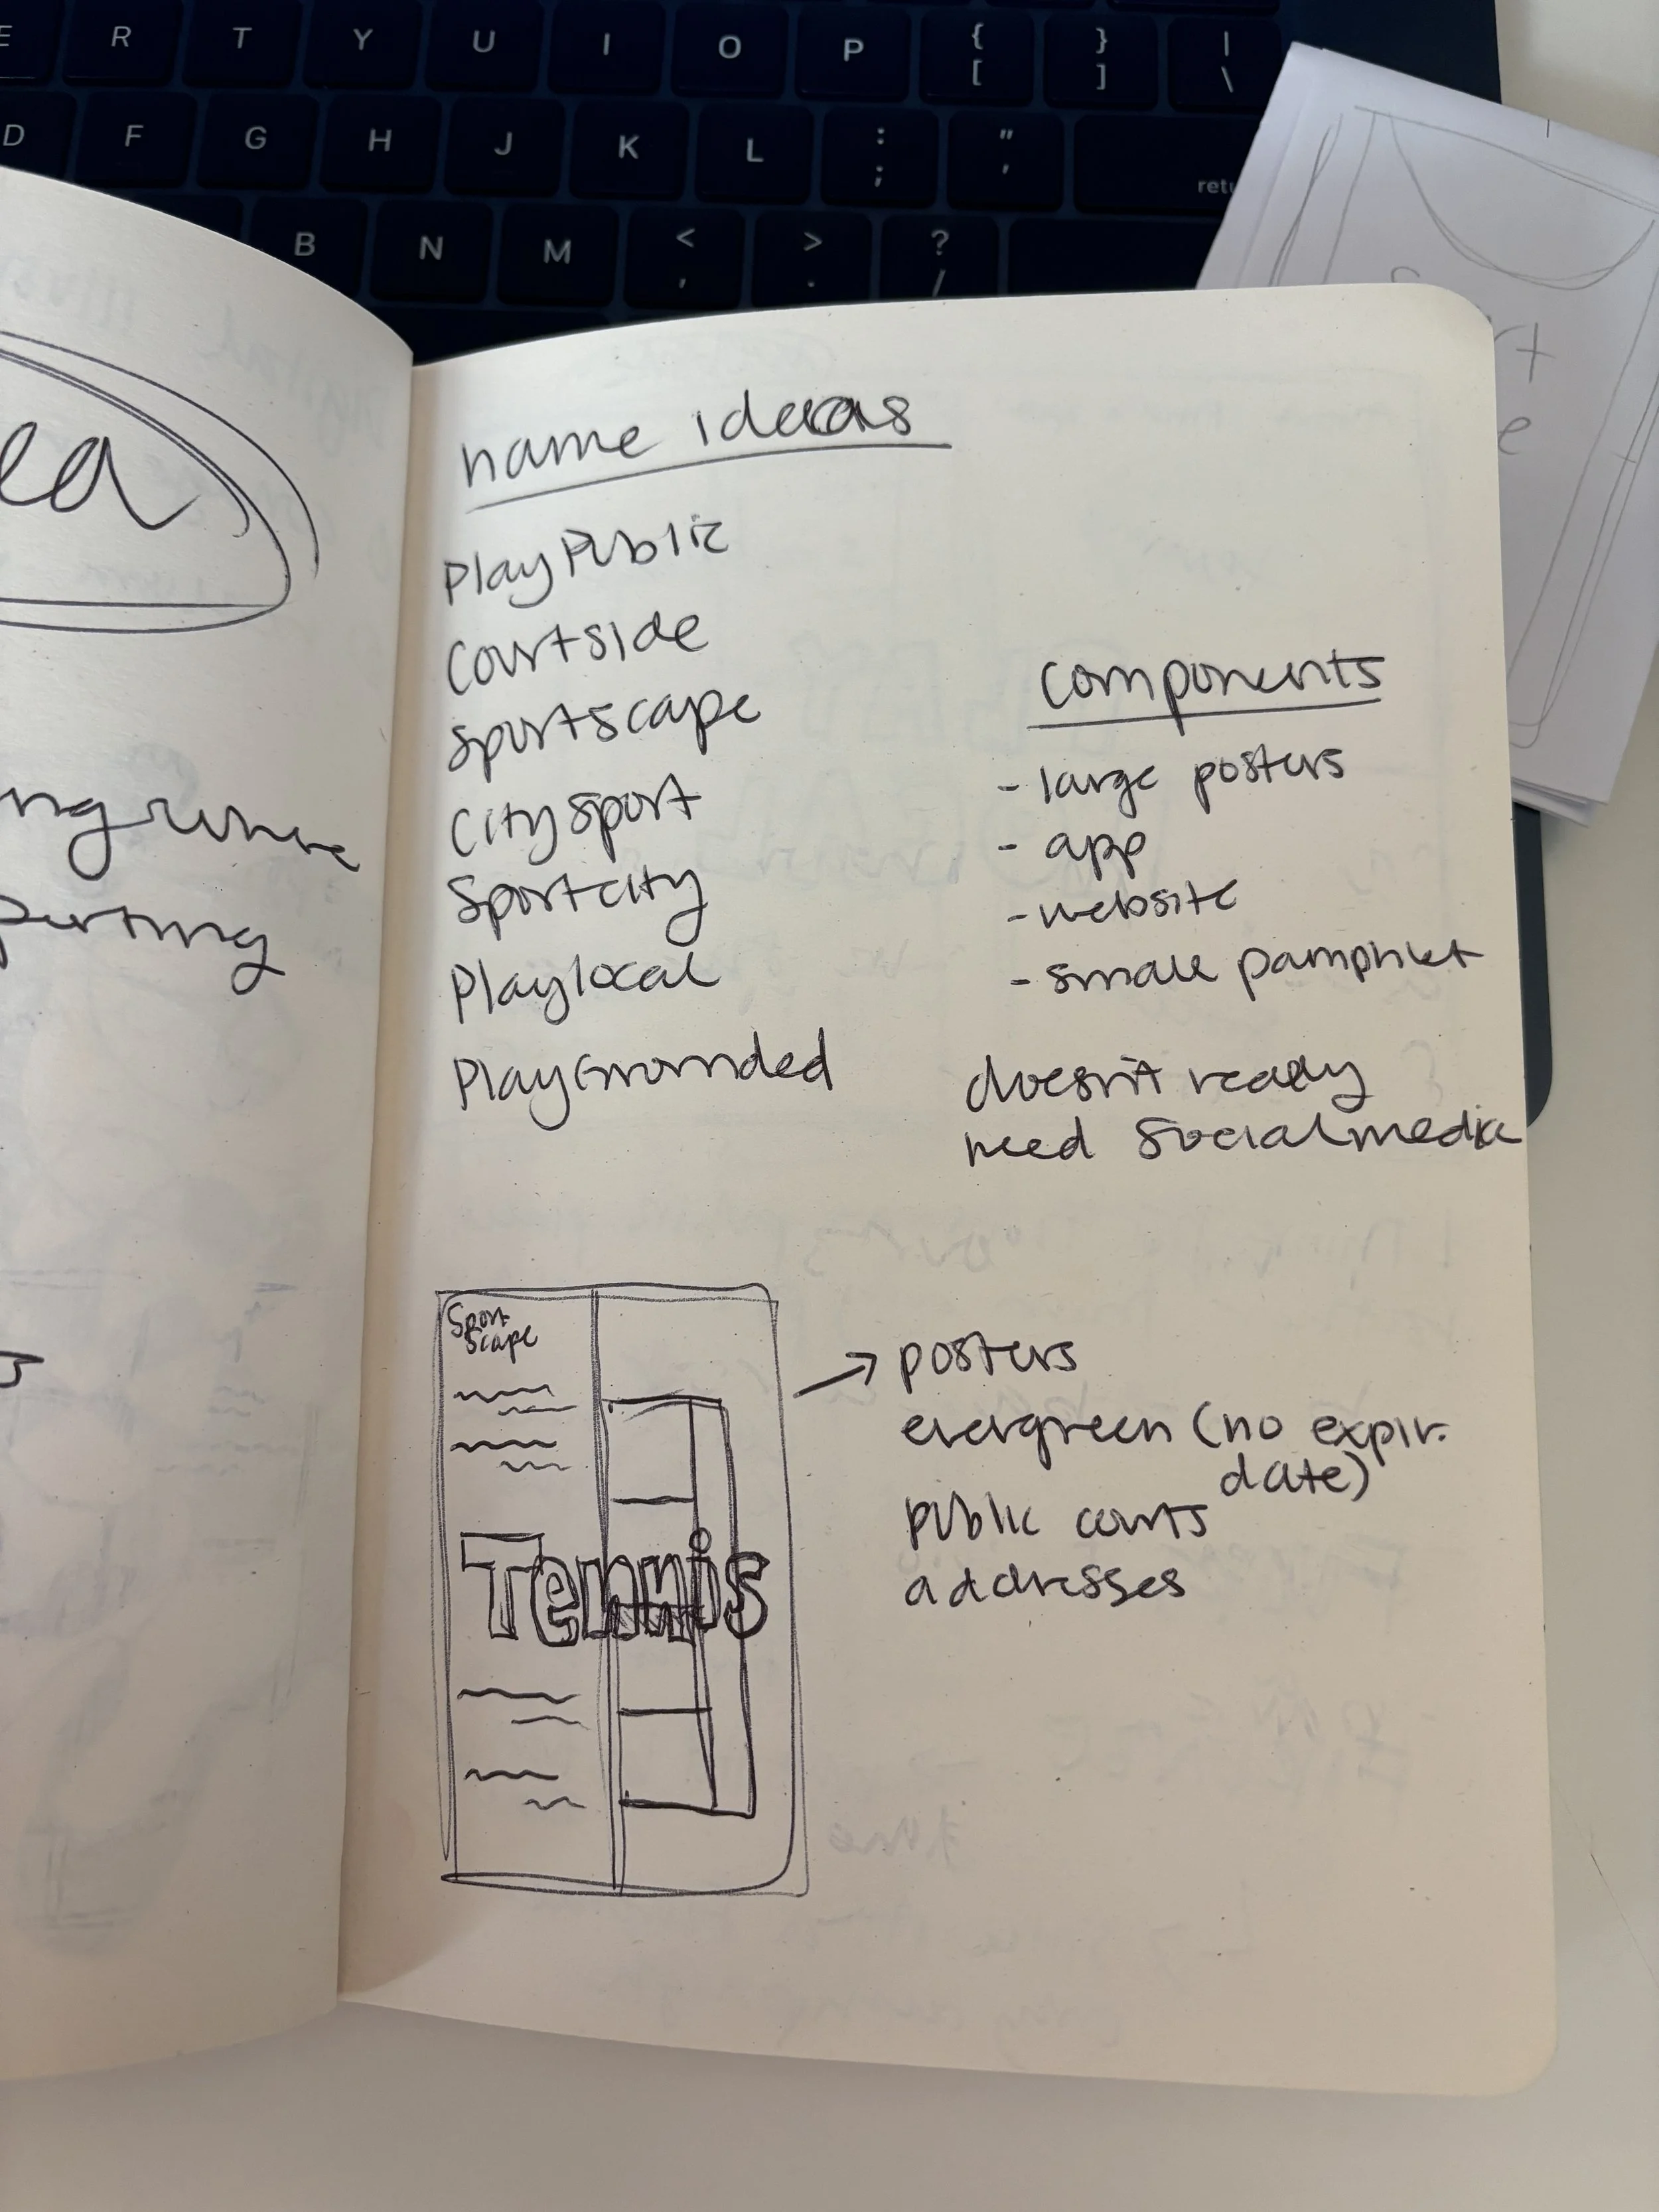 E R T Y U I O P { [ } ] | \
D F G H J K L : ; " '
B N M < , > . ? /
name ideas
PlayPublic
Courtside
sportscape
City sport
Sportcity
Playlocal
PlayGrounded
components
- large posters
- app
- website
- small pamphlet
doesn't really
need social media
Sport
Scape
Tennis
→ posters
evergreen (no expir.
date)
public courts
addresses